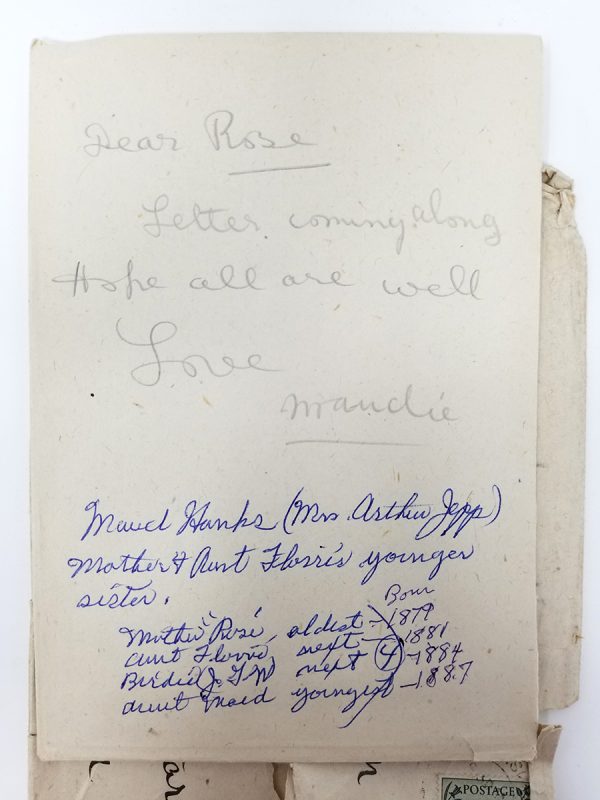 Dear Rose
Letter coming along
Hope all are well
Love
Maudie
Maud Hanks (Mrs. Arthur Jepp)
Mother & Aunt Florrie's younger
sister.
Born
Mother "Rose", oldest - 1879
Aunt Florrie, next - 1881
Birdie (J. F. W) next (4) - 1884
Aunt Maud youngest - 1887
POSTAGE